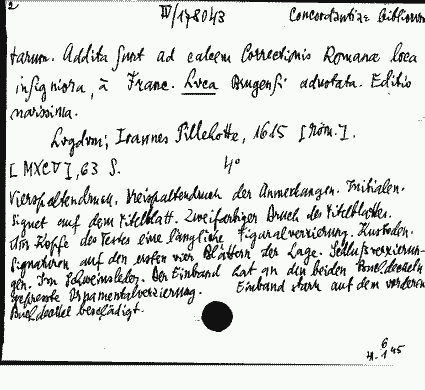 2
IV/178043 Concordantiae Bibliorum
tarum. Addita sunt ad calcem Correctionis Romanae loca
insigniora, à Franc. Luca Brugensi adnotata. Editio
novissima.
Lugduni, Ioannes Pillehotte, 1615 [röm.].
[MXCV], 63 S. 4°
Vierspaltendruck. Dreispaltendruck der Anmerkungen. Initialen.
Signet auf dem Titelblatt. Zweifarbiger Druck des Titelblattes.
Am Kopfe des Textes eine längliche Figuralverzierung. Kustoden.
Signaturen auf den ersten vier Blättern der Lage. Schlußverzierun-
gen. In Schweinsleder. Der Einband hat an den beiden Buchdeckeln
gepresste Ornamentalverzierung. Einband stark auf dem vorderen
Buchdeckel beschädigt.